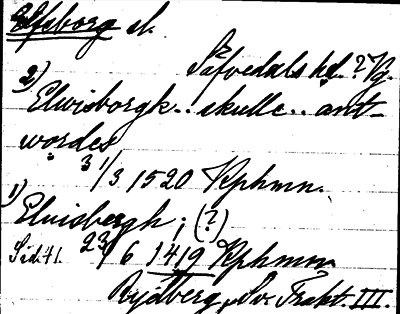 Elfsborg sl.
Säfvedals hd. ? Vg.
2) Elwisborgh.. skulle.. ant-
wordes
31/3 1520 Kphmn.
1) Eluisbergh; (?)
Sid. 41. 23/6 1419 Kphmn
Rydberg, Sv. Trakt. III.